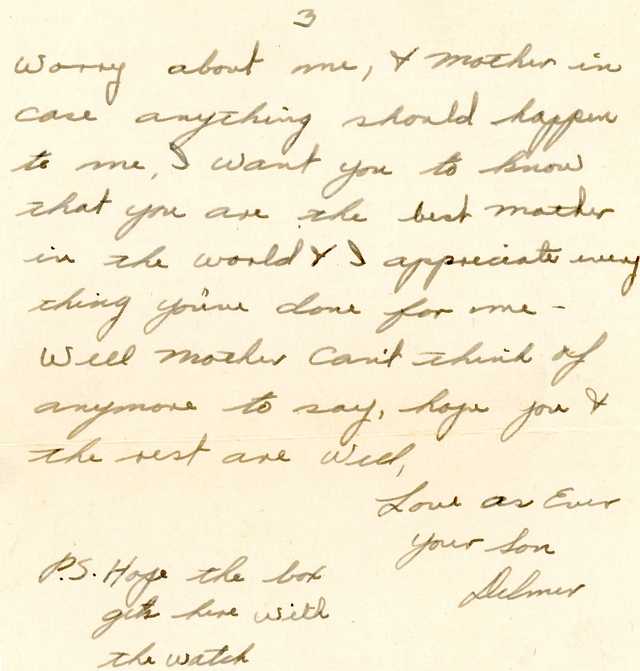 3
worry about me, & mother in
case anything should happen
to me, I want you to know
that you are the best mother
in the world & I appreciate every
thing you've done for me -
Well Mother can't think of
anymore to say, hope you &
the rest are well,
Love as Ever
your son
Delmer
P.S. Hope the box
gets here with
the watch